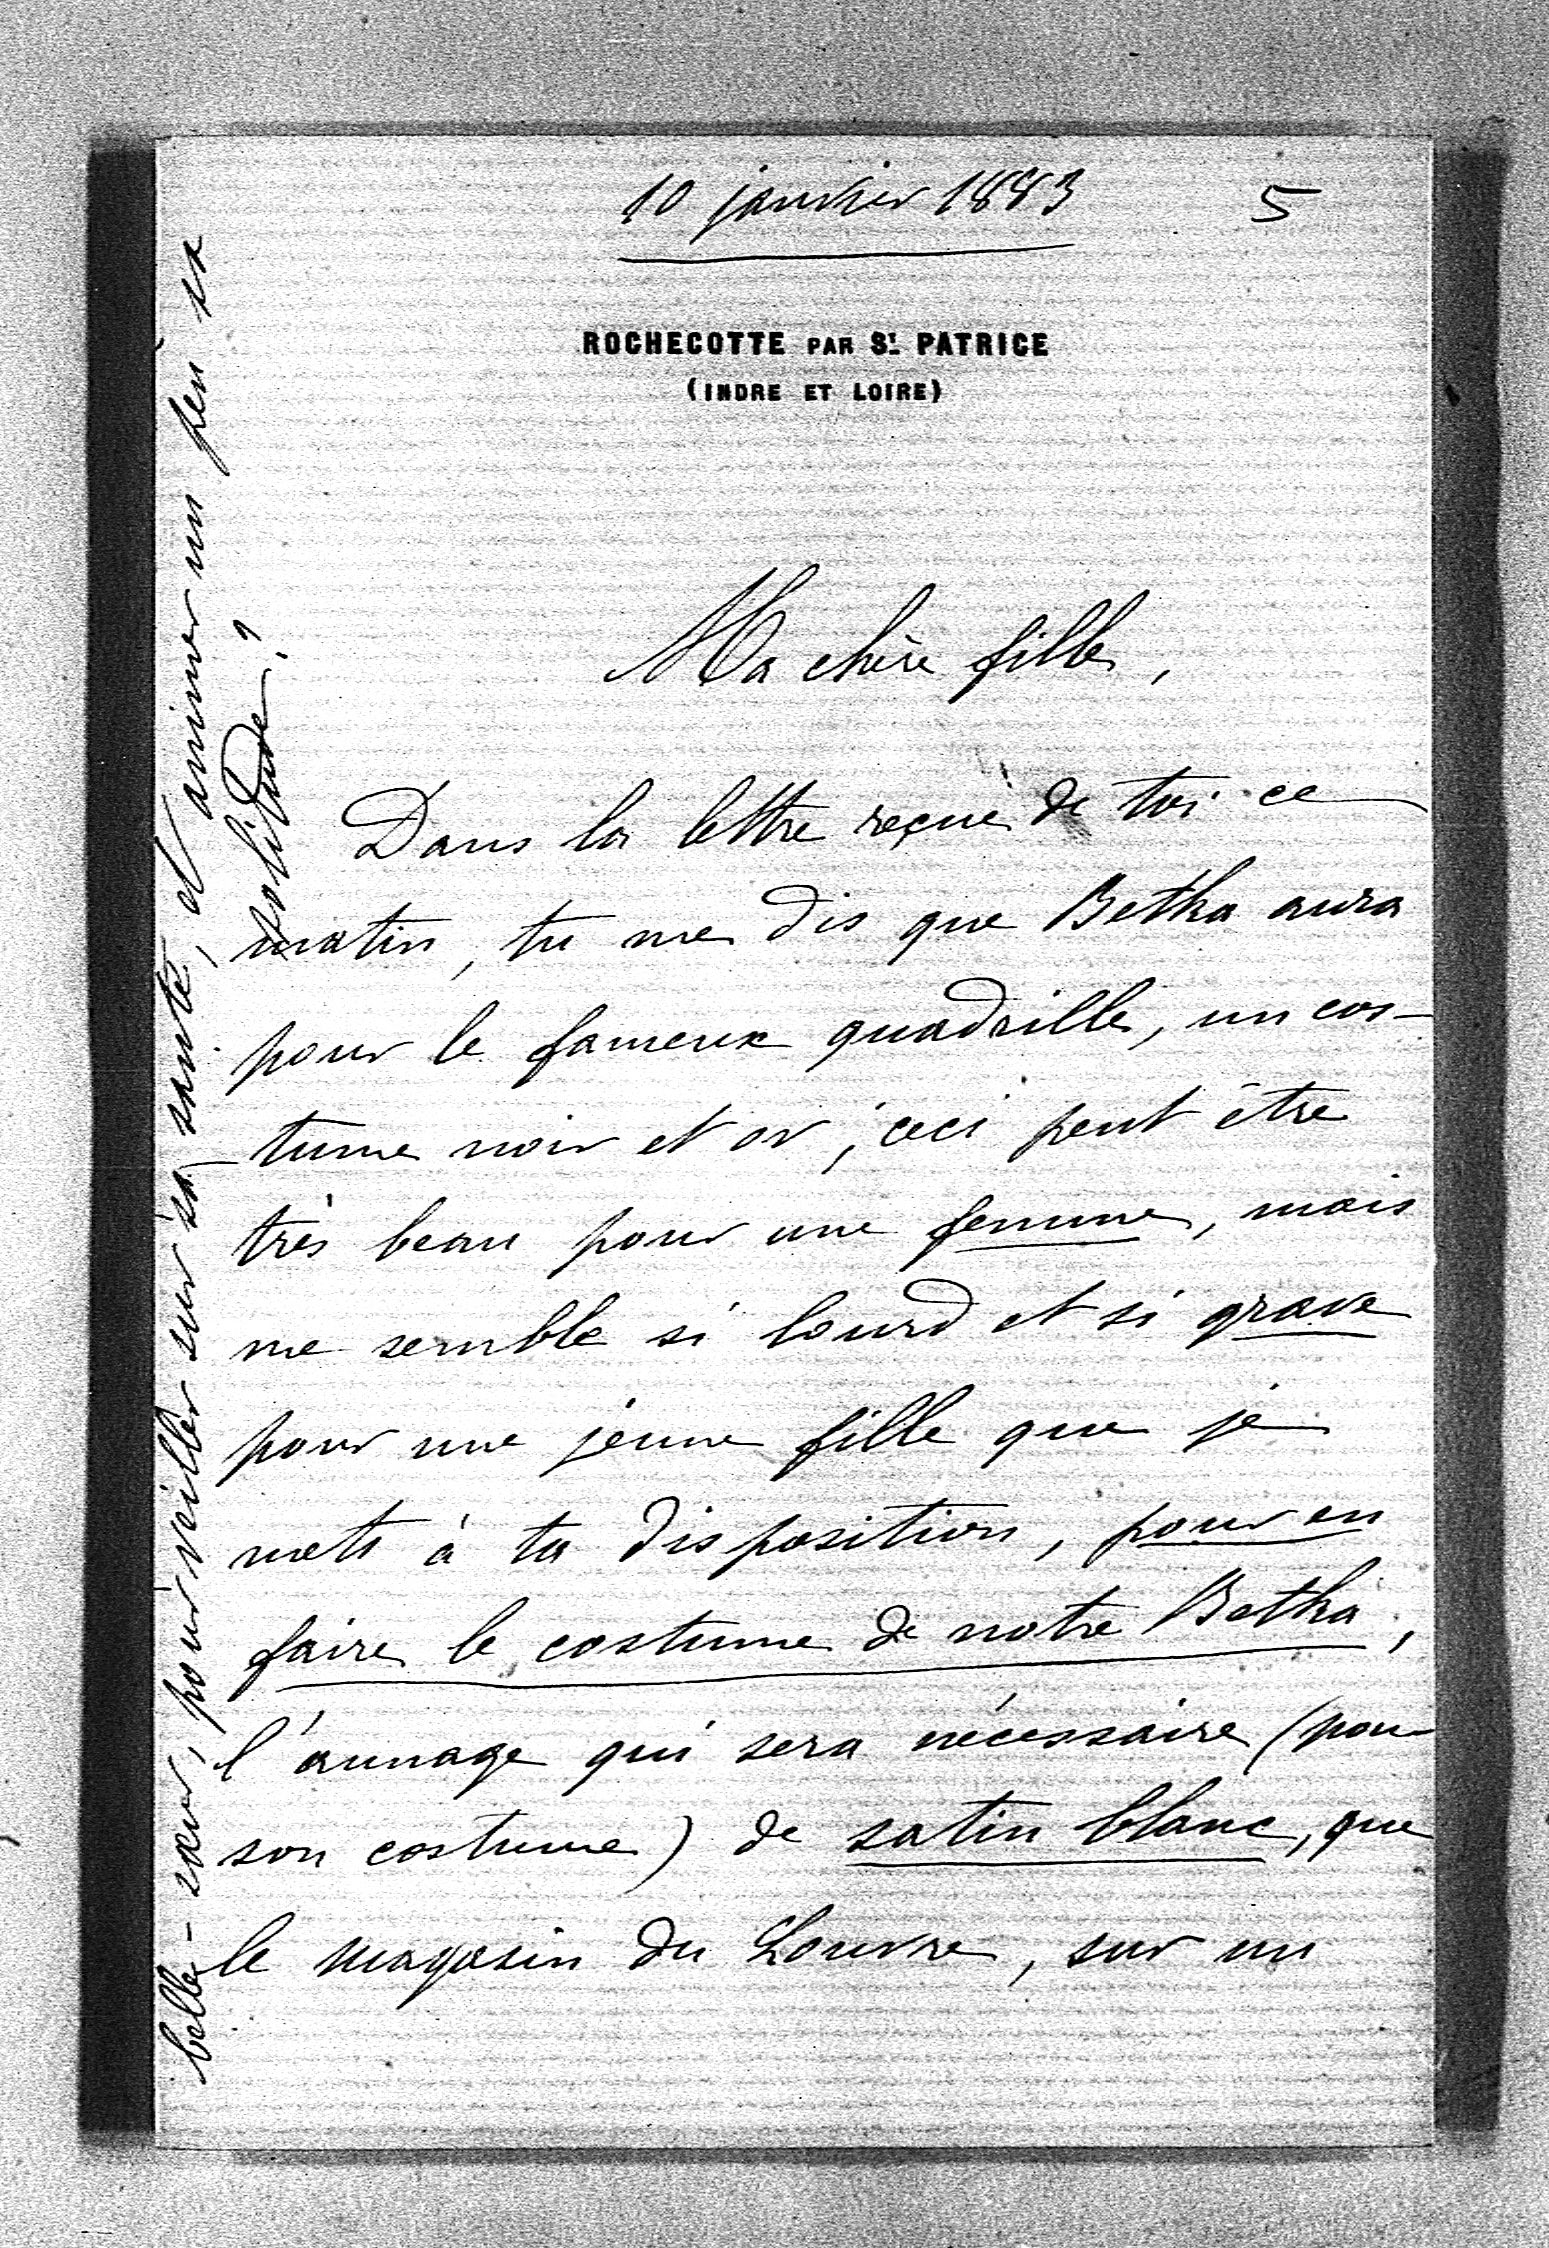 10 janvier 1883
5
ROCHECOTTE PAR ST. PATRICE
(INDRE ET LOIRE)
Ma chère fille,
Dans la lettre reçue de toi ce
matin, tu me dis que Betka aura
pour le fameux quadrille, un cos-
tume noir et or, ceci peut être
très beau pour une femme, mais
me semble si lourd et si grave
pour une jeune fille que je
mets à ta disposition, pour en
faire le costume de notre Betka,
l'aunage qui sera nécessaire (pour
son costume) de satin blanc, que
le magasin du Louvre, sur un
belle-sœur, pour veiller sur sa santé, et animer un peu sa
solitude?